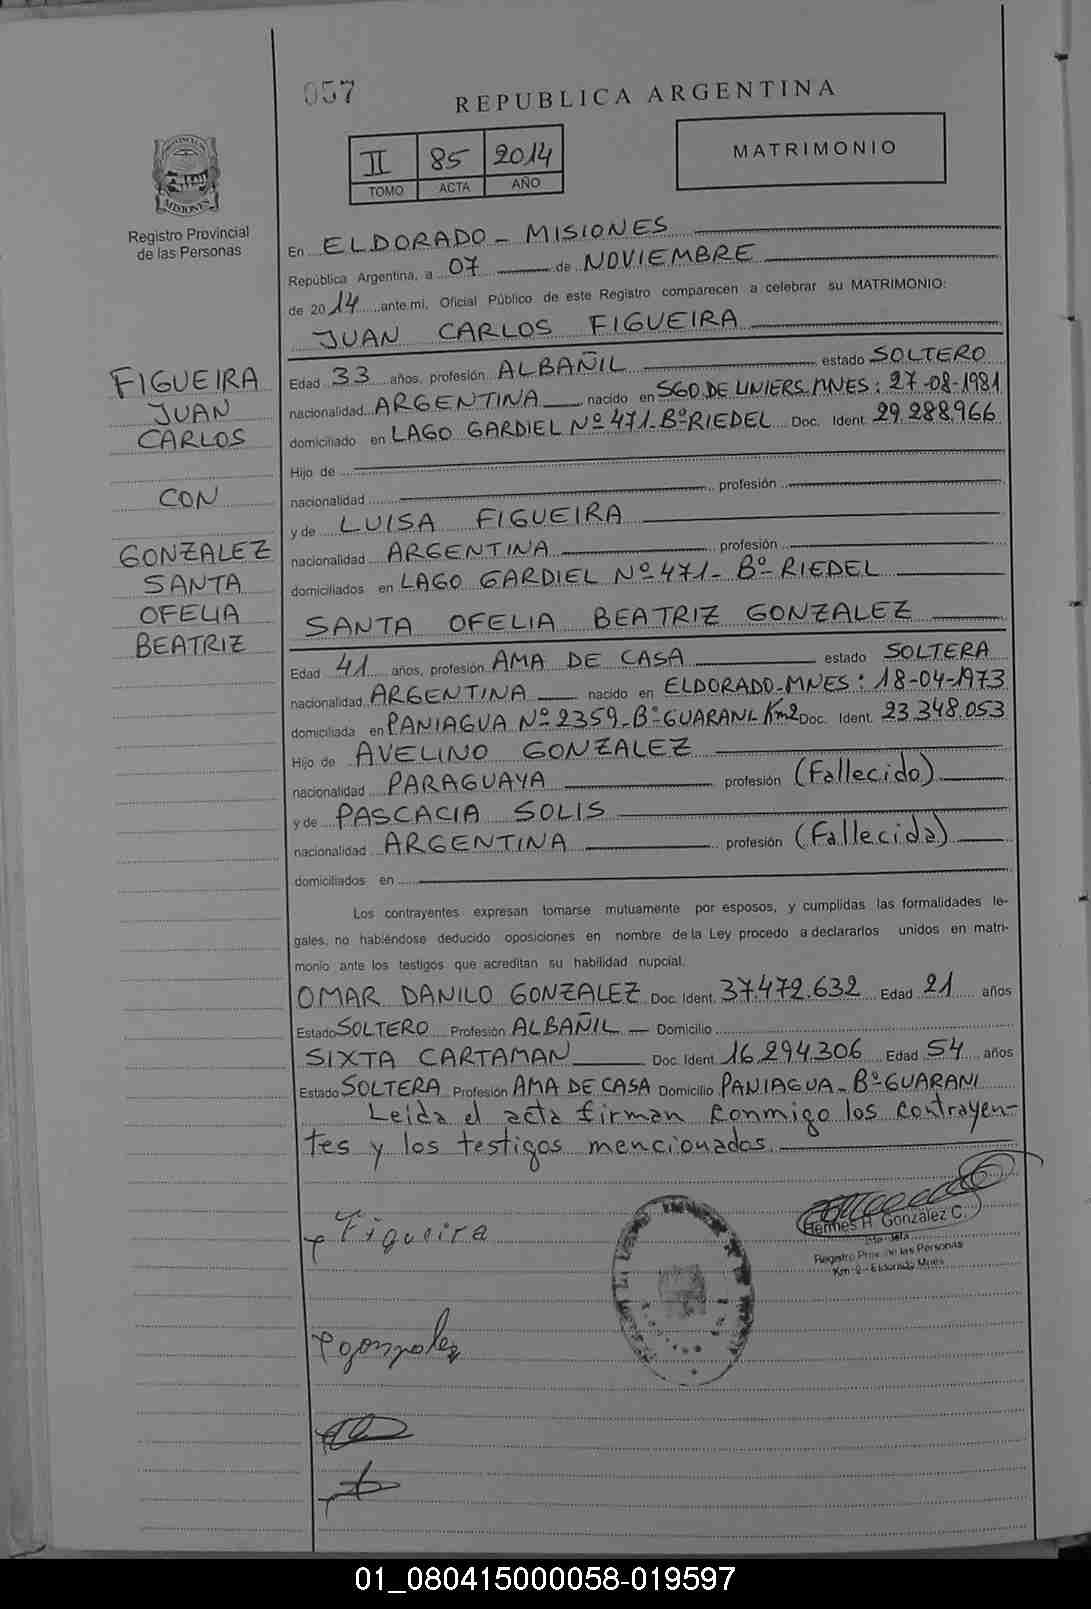 057
REPUBLICA ARGENTINA
II 85 2014
TOMO ACTA AÑO
MATRIMONIO
MISIONES
Registro Provincial
de las Personas
En ELDORADO - MISIONES
República Argentina, a 07 de NOVIEMBRE
de 2014 ante mi, Oficial Público de este Registro comparecen a celebrar su MATRIMONIO:
JUAN CARLOS FIGUEIRA
FIGUEIRA
JUAN
CARLOS
CON
GONZALEZ
SANTA
OFELIA
BEATRIZ
Edad 33 años, profesión ALBAÑIL estado SOLTERO
nacionalidad ARGENTINA nacido en SGO.DE LINIERS.MNES: 27-08-1981
domiciliado en LAGO GARDIEL Nº 471-Bº RIEDEL Doc. Ident. 29.288.966
Hijo de
nacionalidad profesión
y de LUISA FIGUEIRA
nacionalidad ARGENTINA profesión
domiciliados en LAGO GARDIEL Nº 471- Bº RIEDEL
SANTA OFELIA BEATRIZ GONZALEZ
Edad 41 años, profesión AMA DE CASA estado SOLTERA
nacionalidad ARGENTINA nacido en ELDORADO-MNES: 18-04-1973
domiciliada en PANIAGUA Nº 2359-Bº GUARANI Km2 Doc. Ident. 23.348.053
Hijo de AVELINO GONZALEZ
nacionalidad PARAGUAYA profesión (Fallecido)
y de PASCACIA SOLIS
nacionalidad ARGENTINA profesión (Fallecida)
domiciliados en
Los contrayentes expresan tomarse mutuamente por esposos, y cumplidas las formalidades le-
gales, no habiéndose deducido oposiciones en nombre de la Ley procedo a declararlos unidos en matri-
monio ante los testigos que acreditan su habilidad nupcial.
OMAR DANILO GONZALEZ Doc. Ident. 37.472.632 Edad 21 años
Estado SOLTERO Profesión ALBAÑIL Domicilio
SIXTA CARTAMAN Doc. Ident. 16.294.306 Edad 54 años
Estado SOLTERA Profesión AMA DE CASA Domicilio PANIAGUA - Bº GUARANI
Leida el acta firman conmigo los contrayen-
tes y los testigos mencionados.
Figueira
Hermes R. González C.
Registro Prov. de las Personas
Km - 2 - Eldorado Mnes
gonzalez
01_080415000058-019597